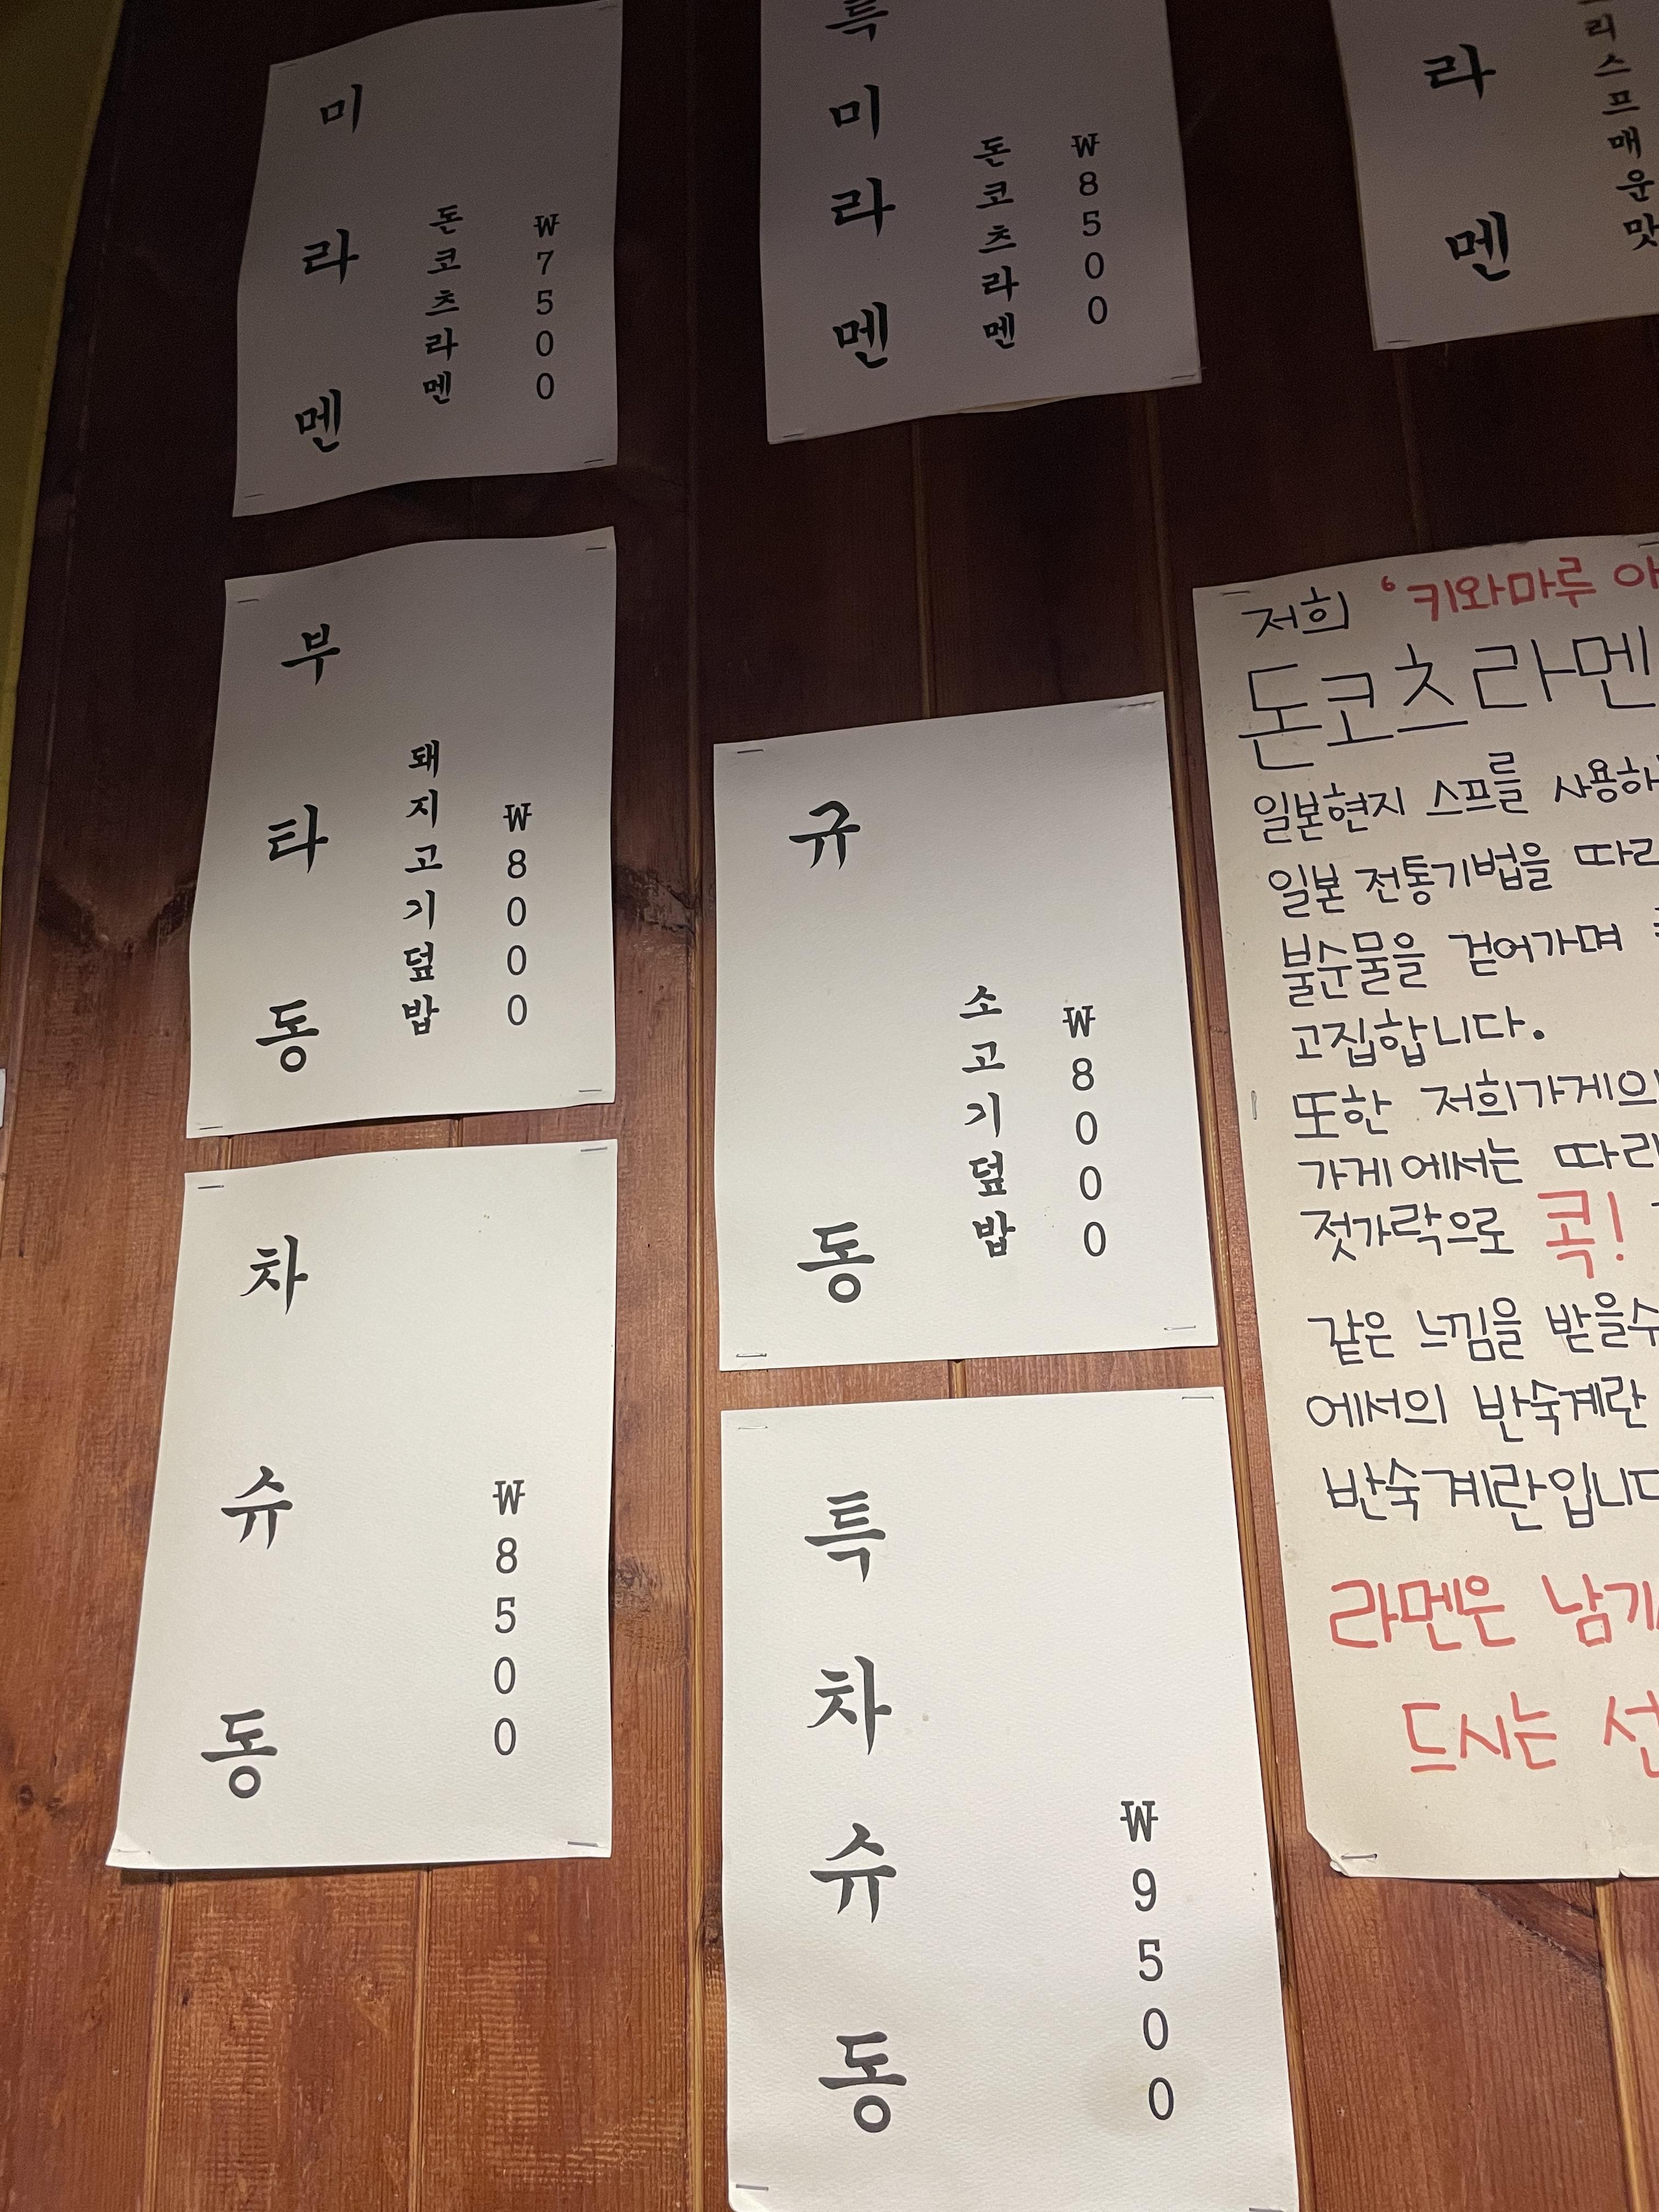 미라멘
돈코츠라멘
₩7500
특미라멘
돈코츠라멘
₩8500
라멘
리스프매운맛
부타동
돼지고기덮밥
₩8000
규동
소고기덮밥
₩8000
차슈동
₩8500
특차슈동
₩9500
저희 '키와마루 아
돈코츠라멘
일본현지 스프를 사용하
일본 전통기법을 따라
불순물을 걷어가며
고집합니다.
또한 저희가게의
가게에서는 따라
젓가락으로 콕!
같은 느낌을 받을수
에서의 반숙계란
반숙계란입니다
라멘은 남기
드시는